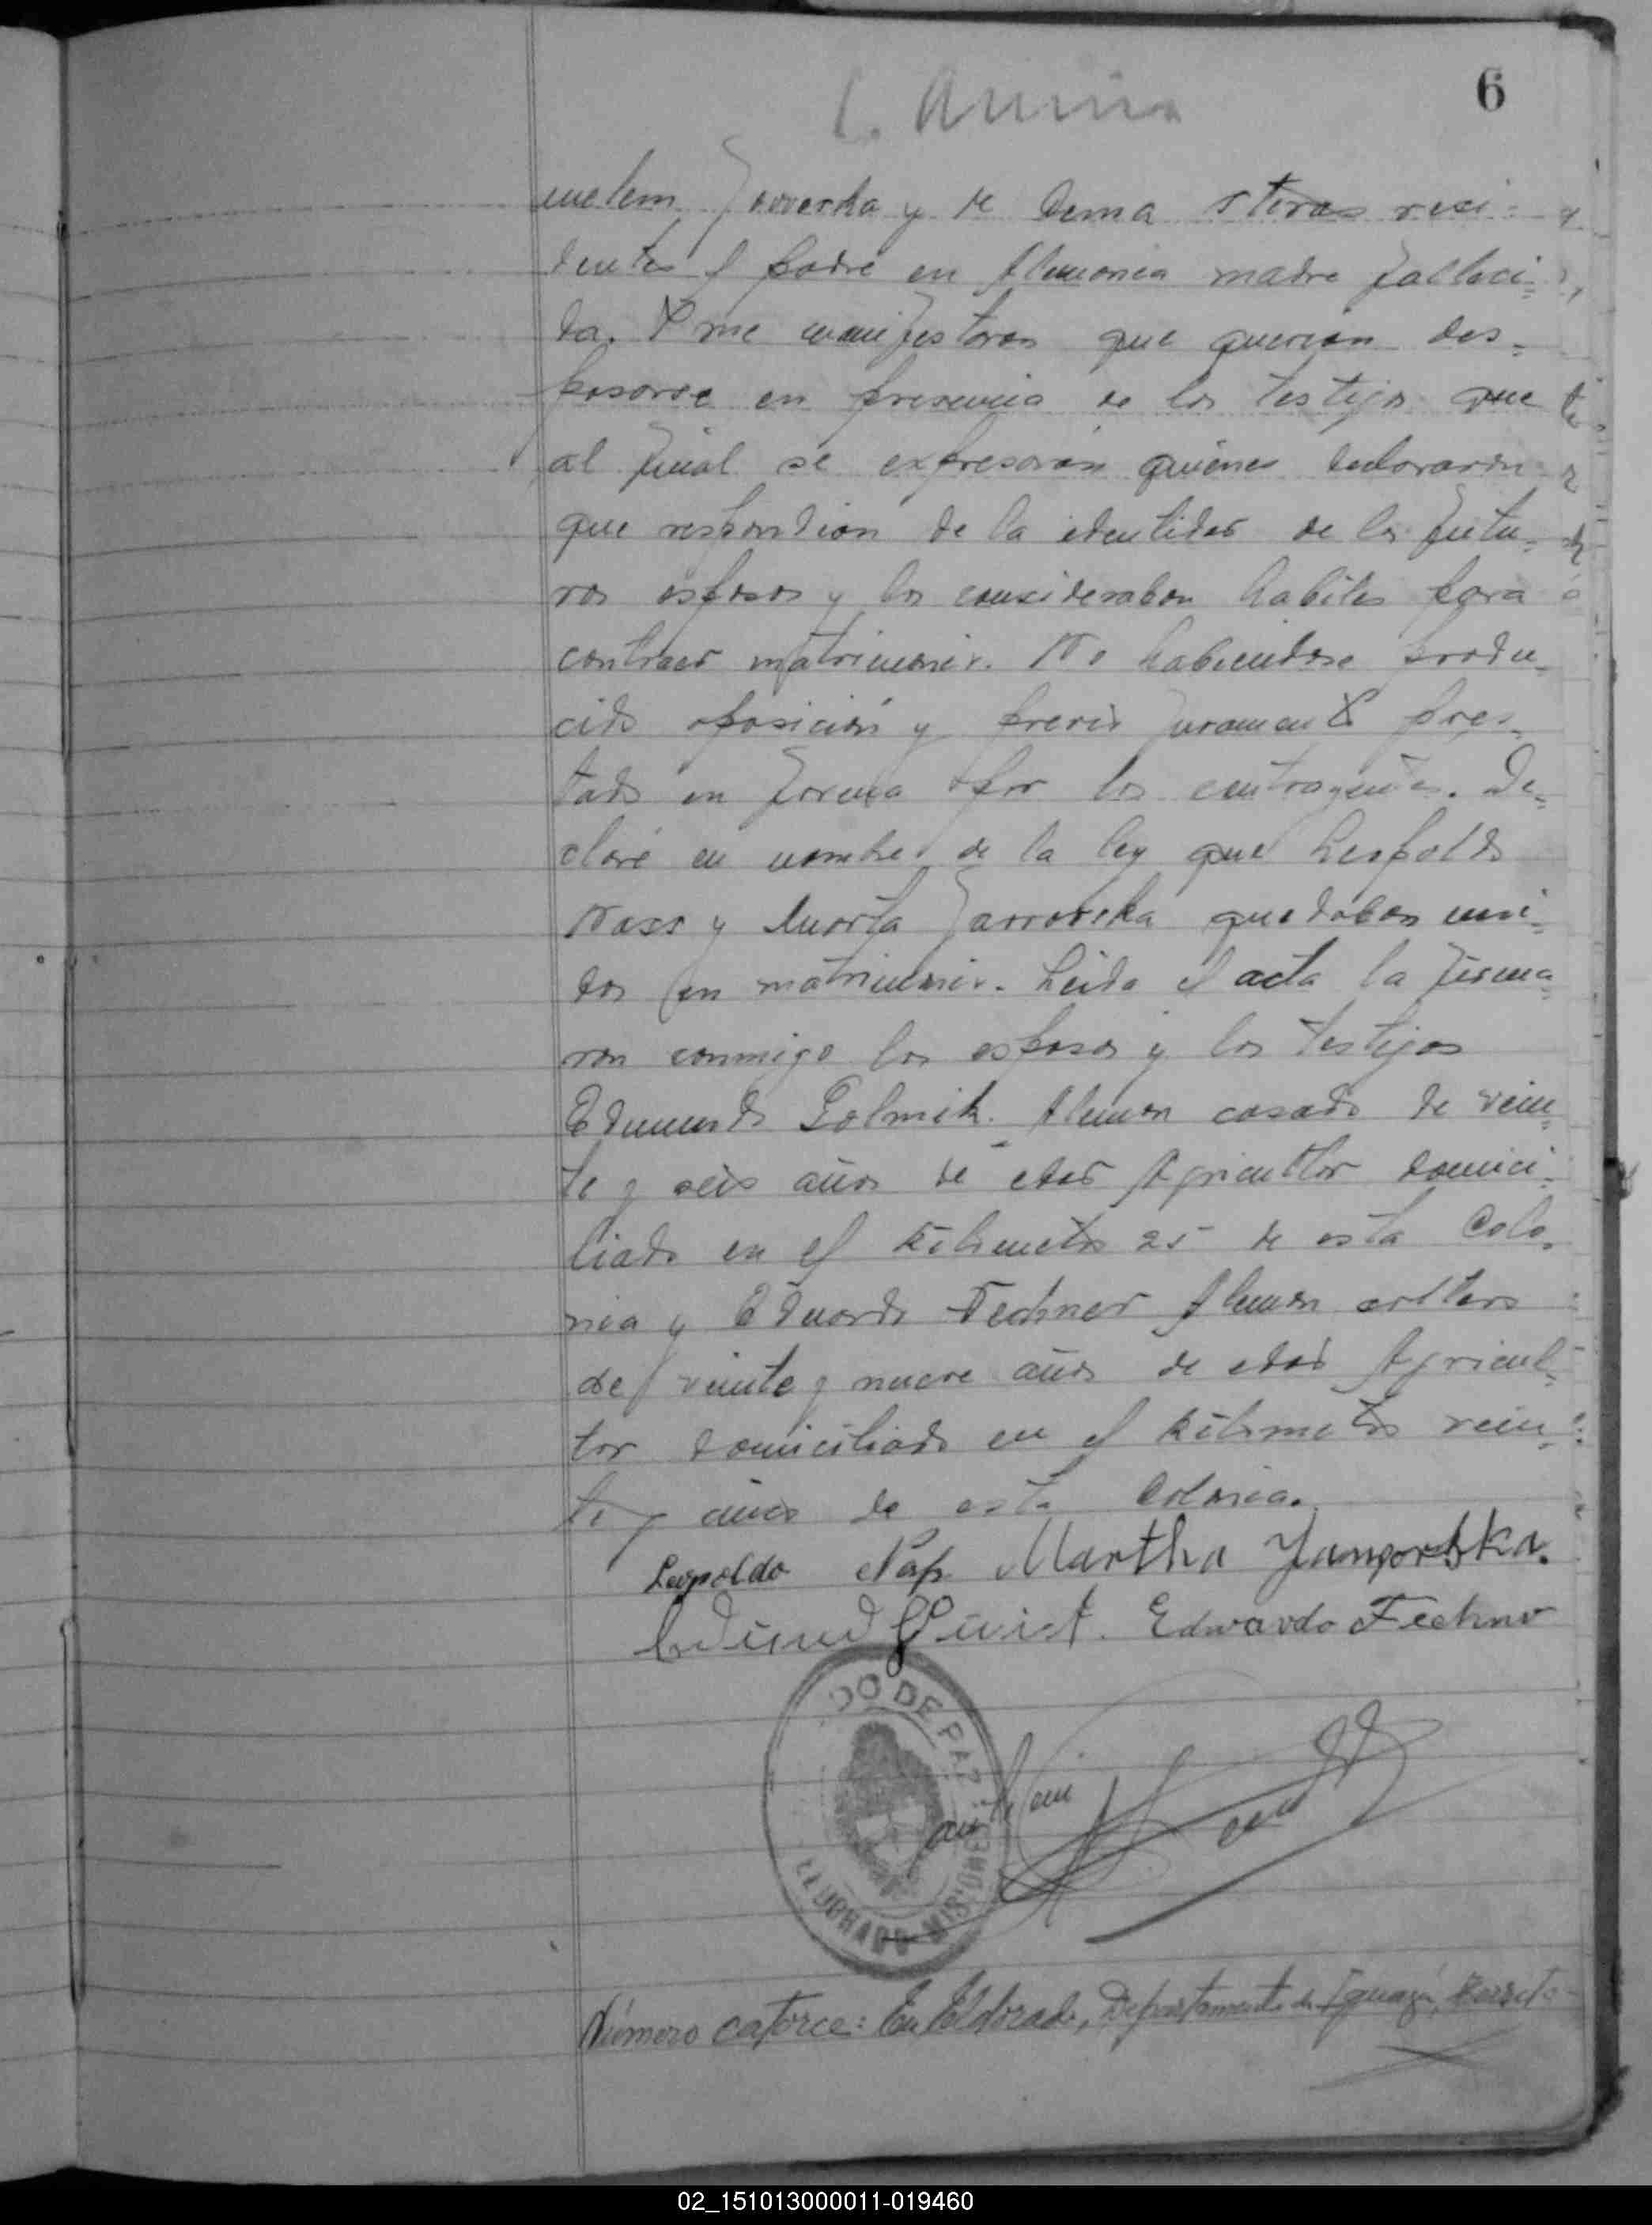 6
y de
dentes el padre en Alemania madre falleci=
da. Y me manifestaron que querian des=
posarse en presencia de los testigos que
al final se expresarán quienes declararon
que respondian de la identidad de los futu=
ros esposos y los consideraban habiles para
contraer matrimonio. No habiendose produ=
cido oposición y previo juramento pres=
tado en forma por los contrayentes. De=
claré en nombre de la ley que Leopoldo
Nass y Marta quedaban uni=
dos en matrimonio. Leida el acta la firma=
ron conmigo los esposos y los testigos
Edmundo Aleman casado de vein=
te y seis años de edad Agricultor domici=
liado en el kilometro 25 de esta Colo=
nia y Eduardo Fechner Aleman soltero
de veinte y nueve años de edad Agricul=
tor domiciliado en el kilometro vein=
te y cinco de esta Colonia.
Leopoldo Martha
Eduardo Fechner
DO DE PAZ
ELDORADO MISIONES
Número catorce: En Eldorado, Departamento de Iguazú, Territo-
02_151013000011-019460